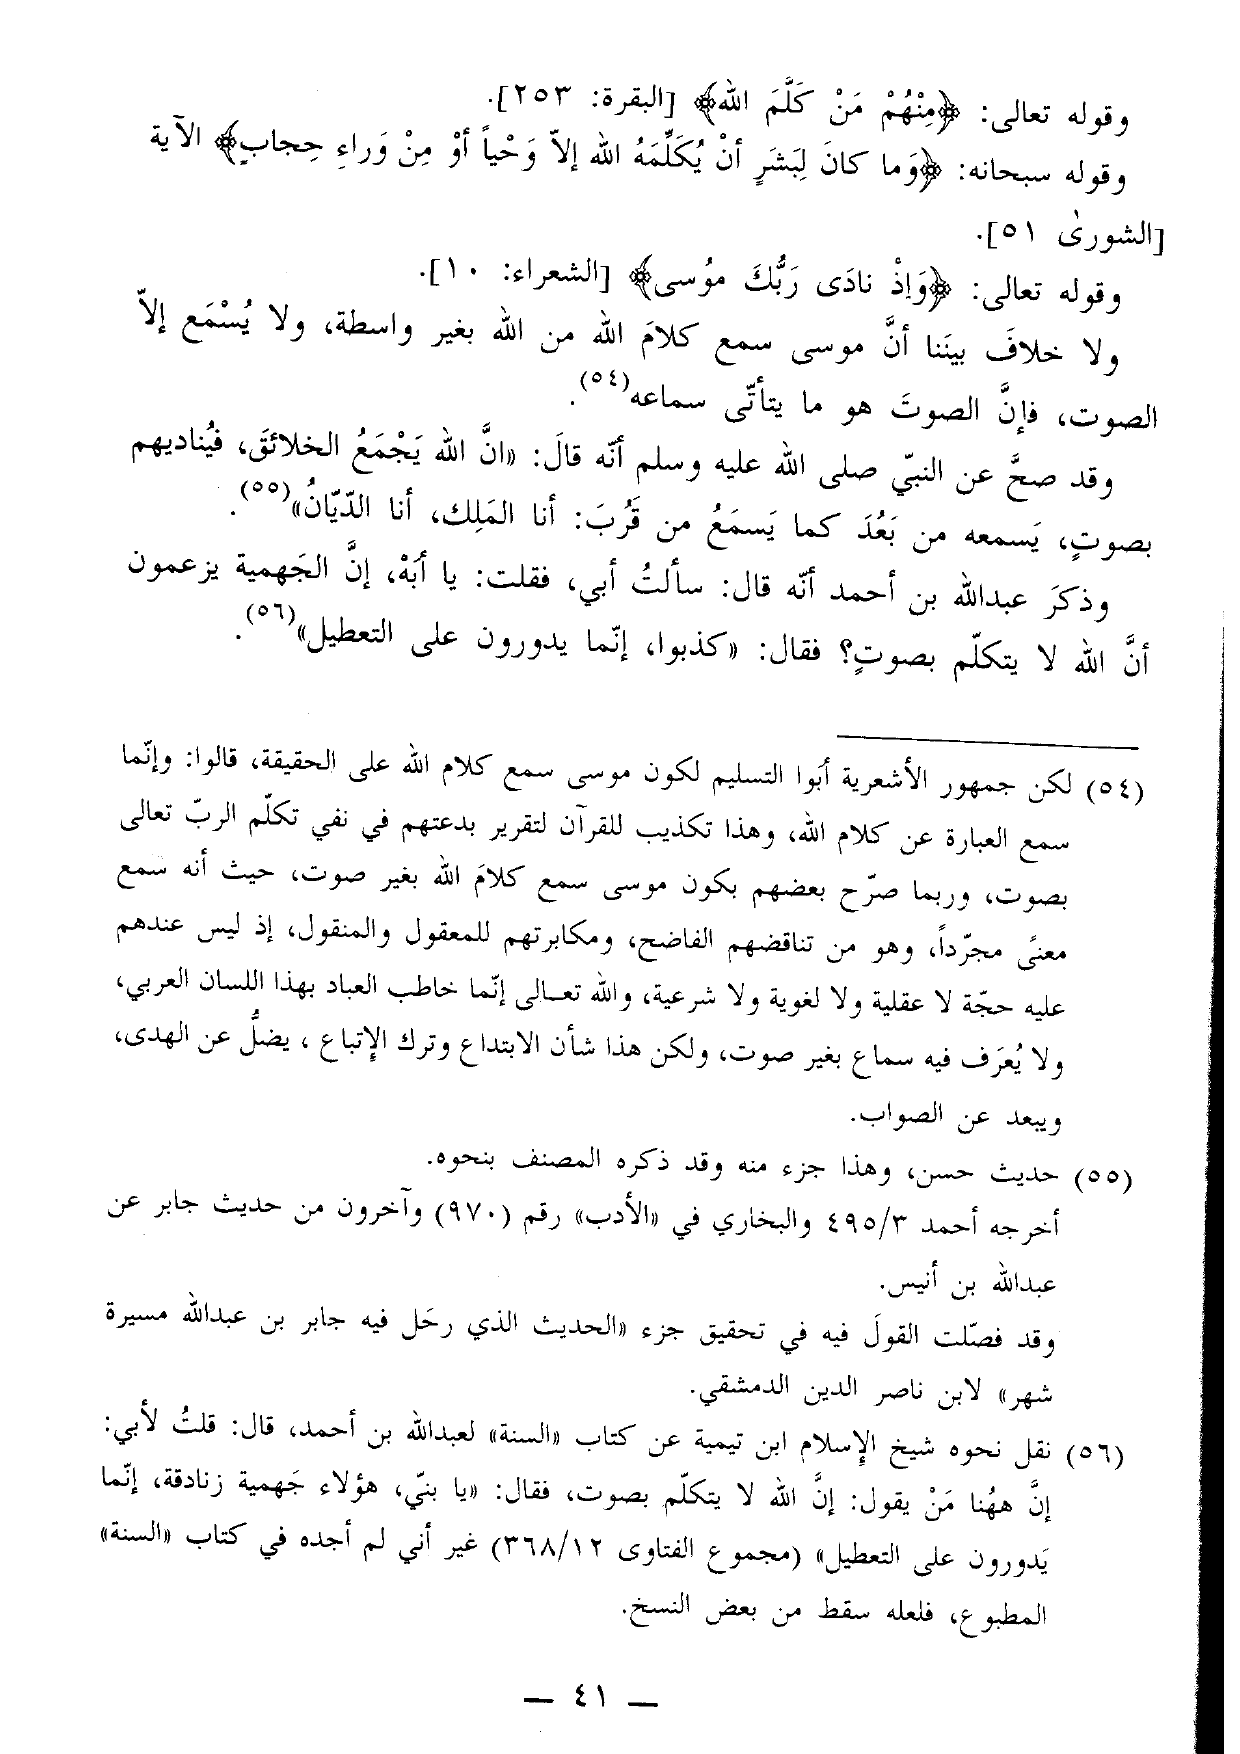 وقوله تعالى: ﴿مِنْهُمْ مَنْ كَلَّمَ الله﴾ [البقرة: ٢٥٣].
وقوله سبحانه: ﴿وَما كانَ لِبَشَرٍ أنْ يُكَلِّمَهُ الله إلاّ وَحْياً أوْ مِنْ وَراءِ حِجابٍ﴾ الآية
[الشورىٰ ٥١].
وقوله تعالى: ﴿وَإذْ نادَى رَبُّكَ موُسى﴾ [الشعراء: ١٠].
ولا خلافَ بيننا أنَّ موسى سمع كلامَ الله من الله بغير واسطة، ولا يُسْمَع إلاّ
الصوت، فإنَّ الصوتَ هو ما يتأتّى سماعه(٥٤).
وقد صحَّ عن النبيّ صلى الله عليه وسلم أنّه قالَ: «انَّ الله يَجْمَعُ الخلائقَ، فيُناديهم
بصوتٍ، يَسمعه من بَعُدَ كما يَسمَعُ من قَرُبَ: أنا المَلِك، أنا الدّيّانُ»(٥٥).
وذكرَ عبدالله بن أحمد أنّه قال: سألتُ أبي، فقلت: يا أبَهْ، إنَّ الجَهمية يزعمون
أنَّ الله لا يتكلّم بصوتٍ؟ فقال: «كذبوا، إنّما يدورون على التعطيل»(٥٦).
(٥٤) لكن جمهور الأشعرية أبَوا التسليم لكون موسى سمع كلام الله على الحقيقة، قالوا: وإنّما
سمع العبارة عن كلام الله، وهذا تكذيب للقرآن لتقرير بدعتهم في نفي تكلّم الربّ تعالى
بصوت، وربما صرّح بعضهم بكون موسى سمع كلامَ الله بغير صوت، حيث أنه سمع
معنًى مجرّداً، وهو من تناقضهم الفاضح، ومكابرتهم للمعقول والمنقول، إذ ليس عندهم
عليه حجّة لا عقلية ولا لغوية ولا شرعية، والله تعالى إنّما خاطب العباد بهذا اللسان العربي،
ولا يُعرَف فيه سماع بغير صوت، ولكن هذا شأن الابتداع وترك الإتباع ، يضلُّ عن الهدى،
ويبعد عن الصواب.
(٥٥) حديث حسن، وهذا جزء منه وقد ذكره المصنف بنحوه.
أخرجه أحمد ٤٩٥/٣ والبخاري في «الأدب» رقم (٩٧٠) وآخرون من حديث جابر عن
عبدالله بن أنيس.
وقد فصّلت القولَ فيه في تحقيق جزء «الحديث الذي رحَل فيه جابر بن عبدالله مسيرة
شهر» لابن ناصر الدين الدمشقي.
(٥٦) نقل نحوه شيخ الإسلام ابن تيمية عن كتاب «السنة» لعبدالله بن أحمد، قال: قلتُ لأبي:
إنَّ ههُنا مَنْ يقول: إنَّ الله لا يتكلّم بصوت، فقال: «يا بنيّ، هؤلاء جَهمية زنادقة، إنّما
يَدورون على التعطيل» (مجموع الفتاوى ٣٦٨/١٢) غير أني لم أجده في كتاب «السنة»
المطبوع، فلعله سقط من بعض النسخ.
— ٤١ —